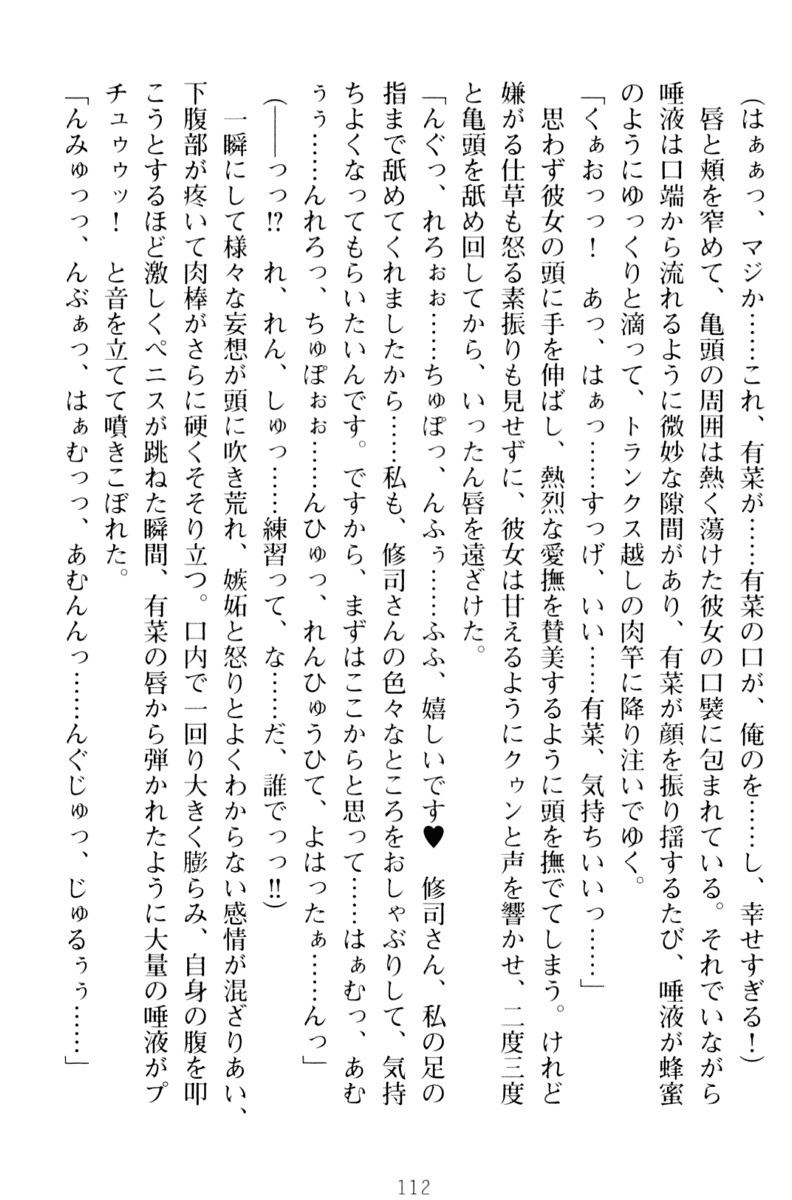 (はぁぁっ、マジか……これ、有菜が……有菜の口が、俺のを……し、幸せすぎる！)
　唇と頬を窄めて、亀頭の周囲は熱く蕩けた彼女の口襞に包まれている。それでいながら
唾液は口端から流れるように微妙な隙間があり、有菜が顔を振り揺するたび、唾液が蜂蜜
のようにゆっくりと滴って、トランクス越しの肉竿に降り注いでゆく。
「くぁおっっ！　あっ、はぁっ……すっげ、いい……有菜、気持ちいいっ……」
　思わず彼女の頭に手を伸ばし、熱烈な愛撫を賛美するように頭を撫でてしまう。けれど
嫌がる仕草も怒る素振りも見せずに、彼女は甘えるようにクゥンと声を響かせ、二度三度
と亀頭を舐め回してから、いったん唇を遠ざけた。
「んぐっ、れろぉぉ……ちゅぽっ、んふぅ……ふふ、嬉しいです♥　修司さん、私の足の
指まで舐めてくれましたから……私も、修司さんの色々なところをおしゃぶりして、気持
ちよくなってもらいたいんです。ですから、まずはここからと思って……はぁむっ、あむ
ぅぅ……んれろっ、ちゅぽぉぉ……んひゅっ、れんひゅうひて、よはったぁ……んっ」
(――っっ!?　れ、れん、しゅっ……練習って、な……だ、誰でっっ!!)
　一瞬にして様々な妄想が頭に吹き荒れ、嫉妬と怒りとよくわからない感情が混ざりあい、
下腹部が疼いて肉棒がさらに硬くそそり立つ。口内で一回り大きく膨らみ、自身の腹を叩
こうとするほど激しくペニスが跳ねた瞬間、有菜の唇から弾かれたように大量の唾液がプ
チュゥゥッ！　と音を立てて噴きこぼれた。
「んみゅっっ、んぶぁっ、はぁむっっ、あむんんっ……んぐじゅっ、じゅるぅぅ……」
112